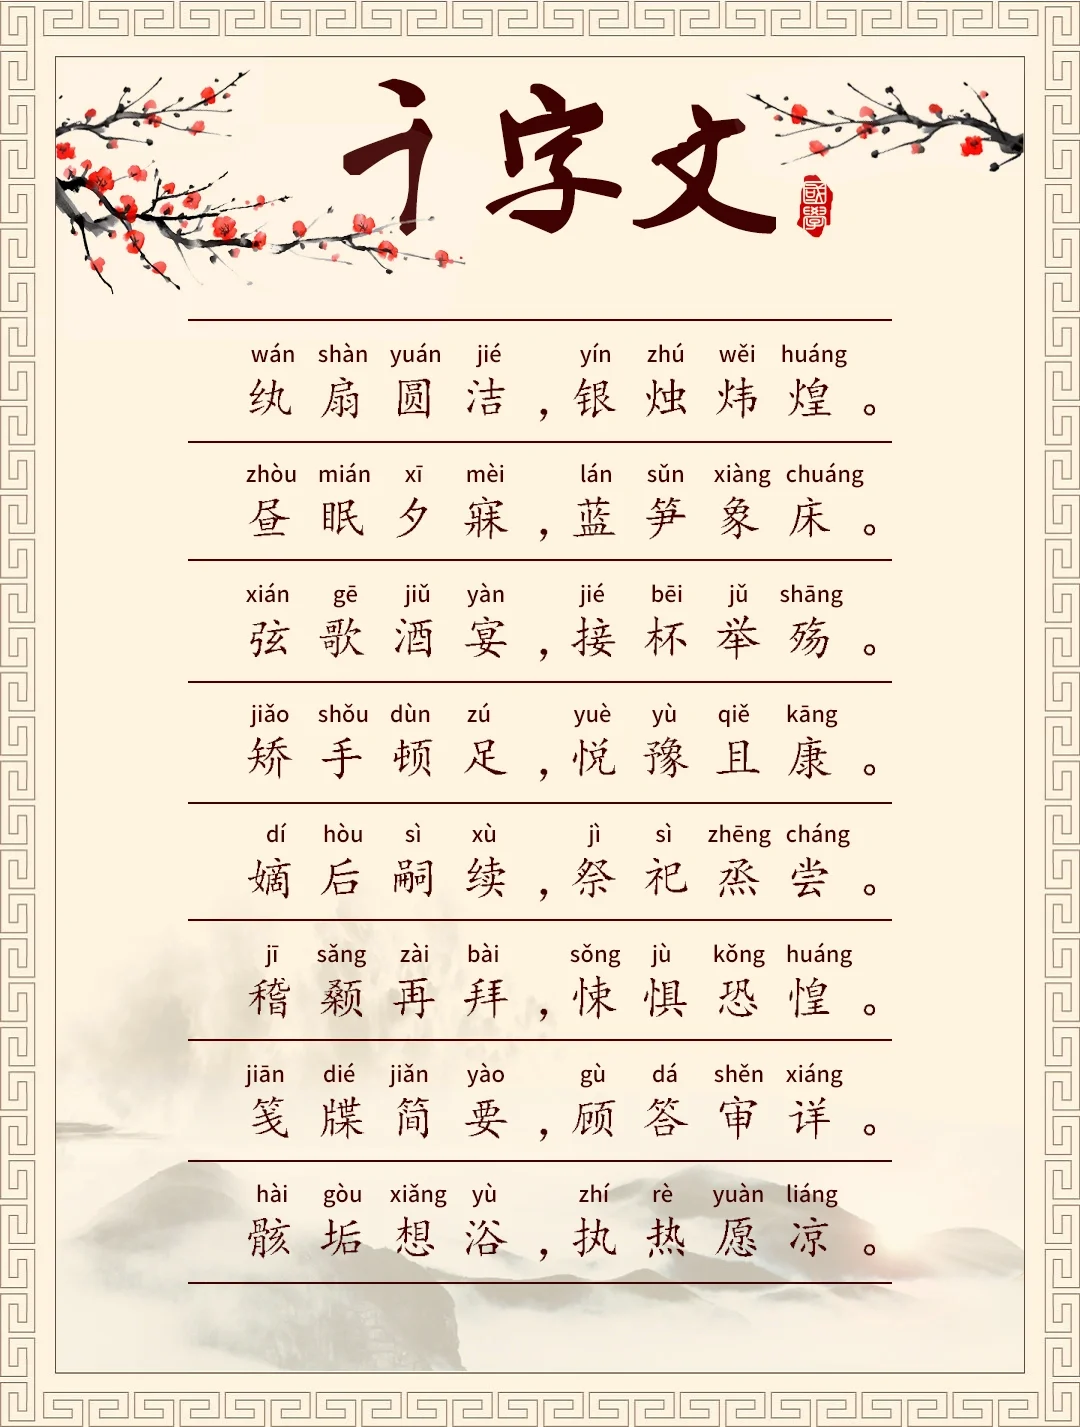 千字文
國學
wán shàn yuán jié yín zhú wěi huáng
纨扇圆洁，银烛炜煌。
zhòu mián xī mèi lán sǔn xiàng chuáng
昼眠夕寐，蓝笋象床。
xián gē jiǔ yàn jié bēi jǔ shāng
弦歌酒宴，接杯举殇。
jiǎo shǒu dùn zú yuè yù qiě kāng
矫手顿足，悦豫且康。
dí hòu sì xù jì sì zhēng cháng
嫡后嗣续，祭祀烝尝。
jī sǎng zài bài sǒng jù kǒng huáng
稽颡再拜，悚惧恐惶。
jiān dié jiǎn yào gù dá shěn xiáng
笺牒简要，顾答审详。
hài gòu xiǎng yù zhí rè yuàn liáng
骸垢想浴，执热愿凉。